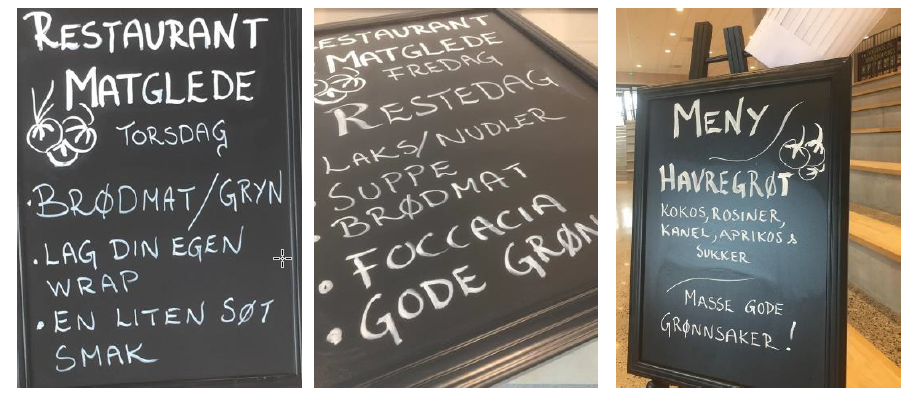 RESTAURANT
MATGLEDE
TORSDAG
• BRØDMAT/GRYN
• LAG DIN EGEN
WRAP
• EN LITEN SØT
SMAK
ESTAURANT
MATGLEDE
FREDAG
RESTEDAG
LAKS/NUDLER
SUPPE
• BRØDMAT
• FOCCACIA
• GODE GRØN
MENY
HAVREGRØT
KOKOS, ROSINER,
KANEL, APRIKOS &
SUKKER
MASSE GODE
GRØNNSAKER!